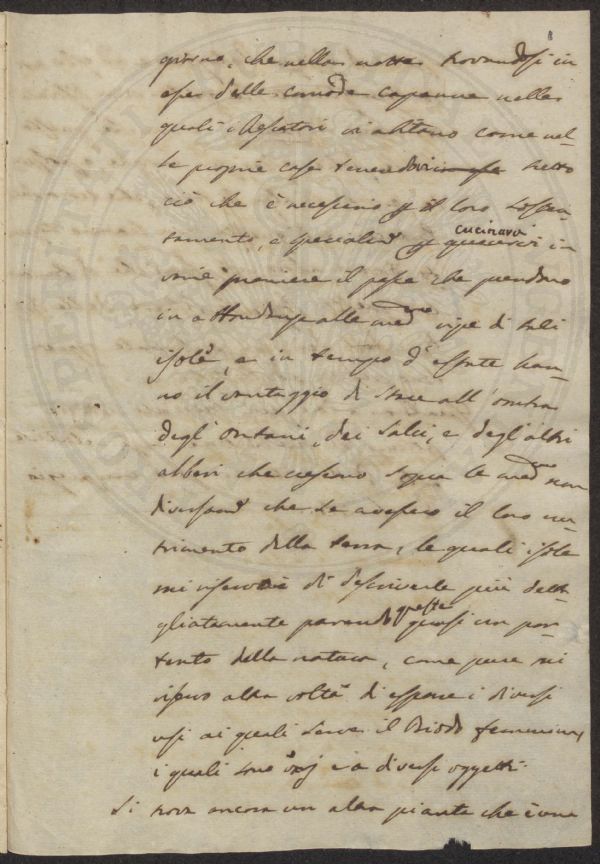 giorno, che nella notte trovandosi in
esse delle comode capanne nelle
quali i Pescatori vi abitano come nel-
le proprie case tenendovi tutto
ciò che è necessario p il loro sosten-
tamento, e specialm p cucinarvi in
varie maniere il pesce che prendono
in abbondanza alle med ripe di tali
isole, e in tempo d'estate han-
no il vantaggio di stare all'ombra
degl'Ontani, dei Salci, e degl'altri
alberi che crescono sopra le med non
diversam che se avessero il loro nu-
trimento della terra, le quali isole
mi riservo di descriverle più detta-
gliatamente parendo queste quasi un por-
tento della natura, come pure mi
riservo altra volta di esporre i diversi
usi ai quali serve il Biodo femmina,
i quali sono varj e a diversi oggetti.
Si trova ancora un altra pianta che è una